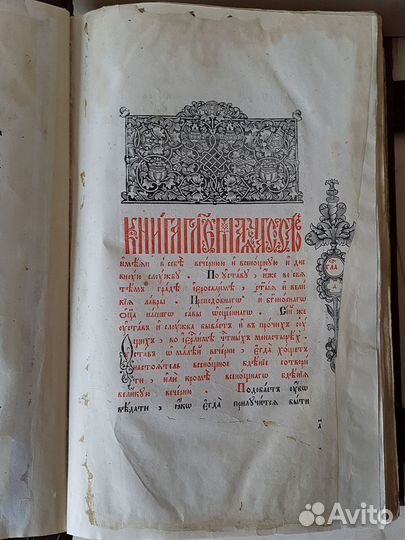 КНИГА
имѣѧи в себѣ вечернюю и всенощную и дне
внꙋю слꙋжбꙋ. По ꙋставꙋ иже во свѧ
тѣмъ градѣ іеросалимѣ, ст҃ыѧ и вели
кіѧ лавры. Преподобнагѡ и бг҃оноснагѡ
оц҃а нашегѡ савы ѡсщ҃еннагѡ. Сей же
ꙋставъ и слꙋжба бываетъ и въ прочих сꙋ
щихъ, во іер҃лимѣ чтⷭ҇ныхъ монастырѣх.
Ꙋставъ ѡ малѣй вечерни, егда хощетъ
настоѧтель всенощное бдѣніе сотвори
ти, или кромѣ всенощнагѡ бдѣнїѧ
великꙋю вечерню. Подобаетъ ꙋбѡ
вѣдати, ꙗкѡ егда прилꙋчитсѧ быти
гла
а
Avito